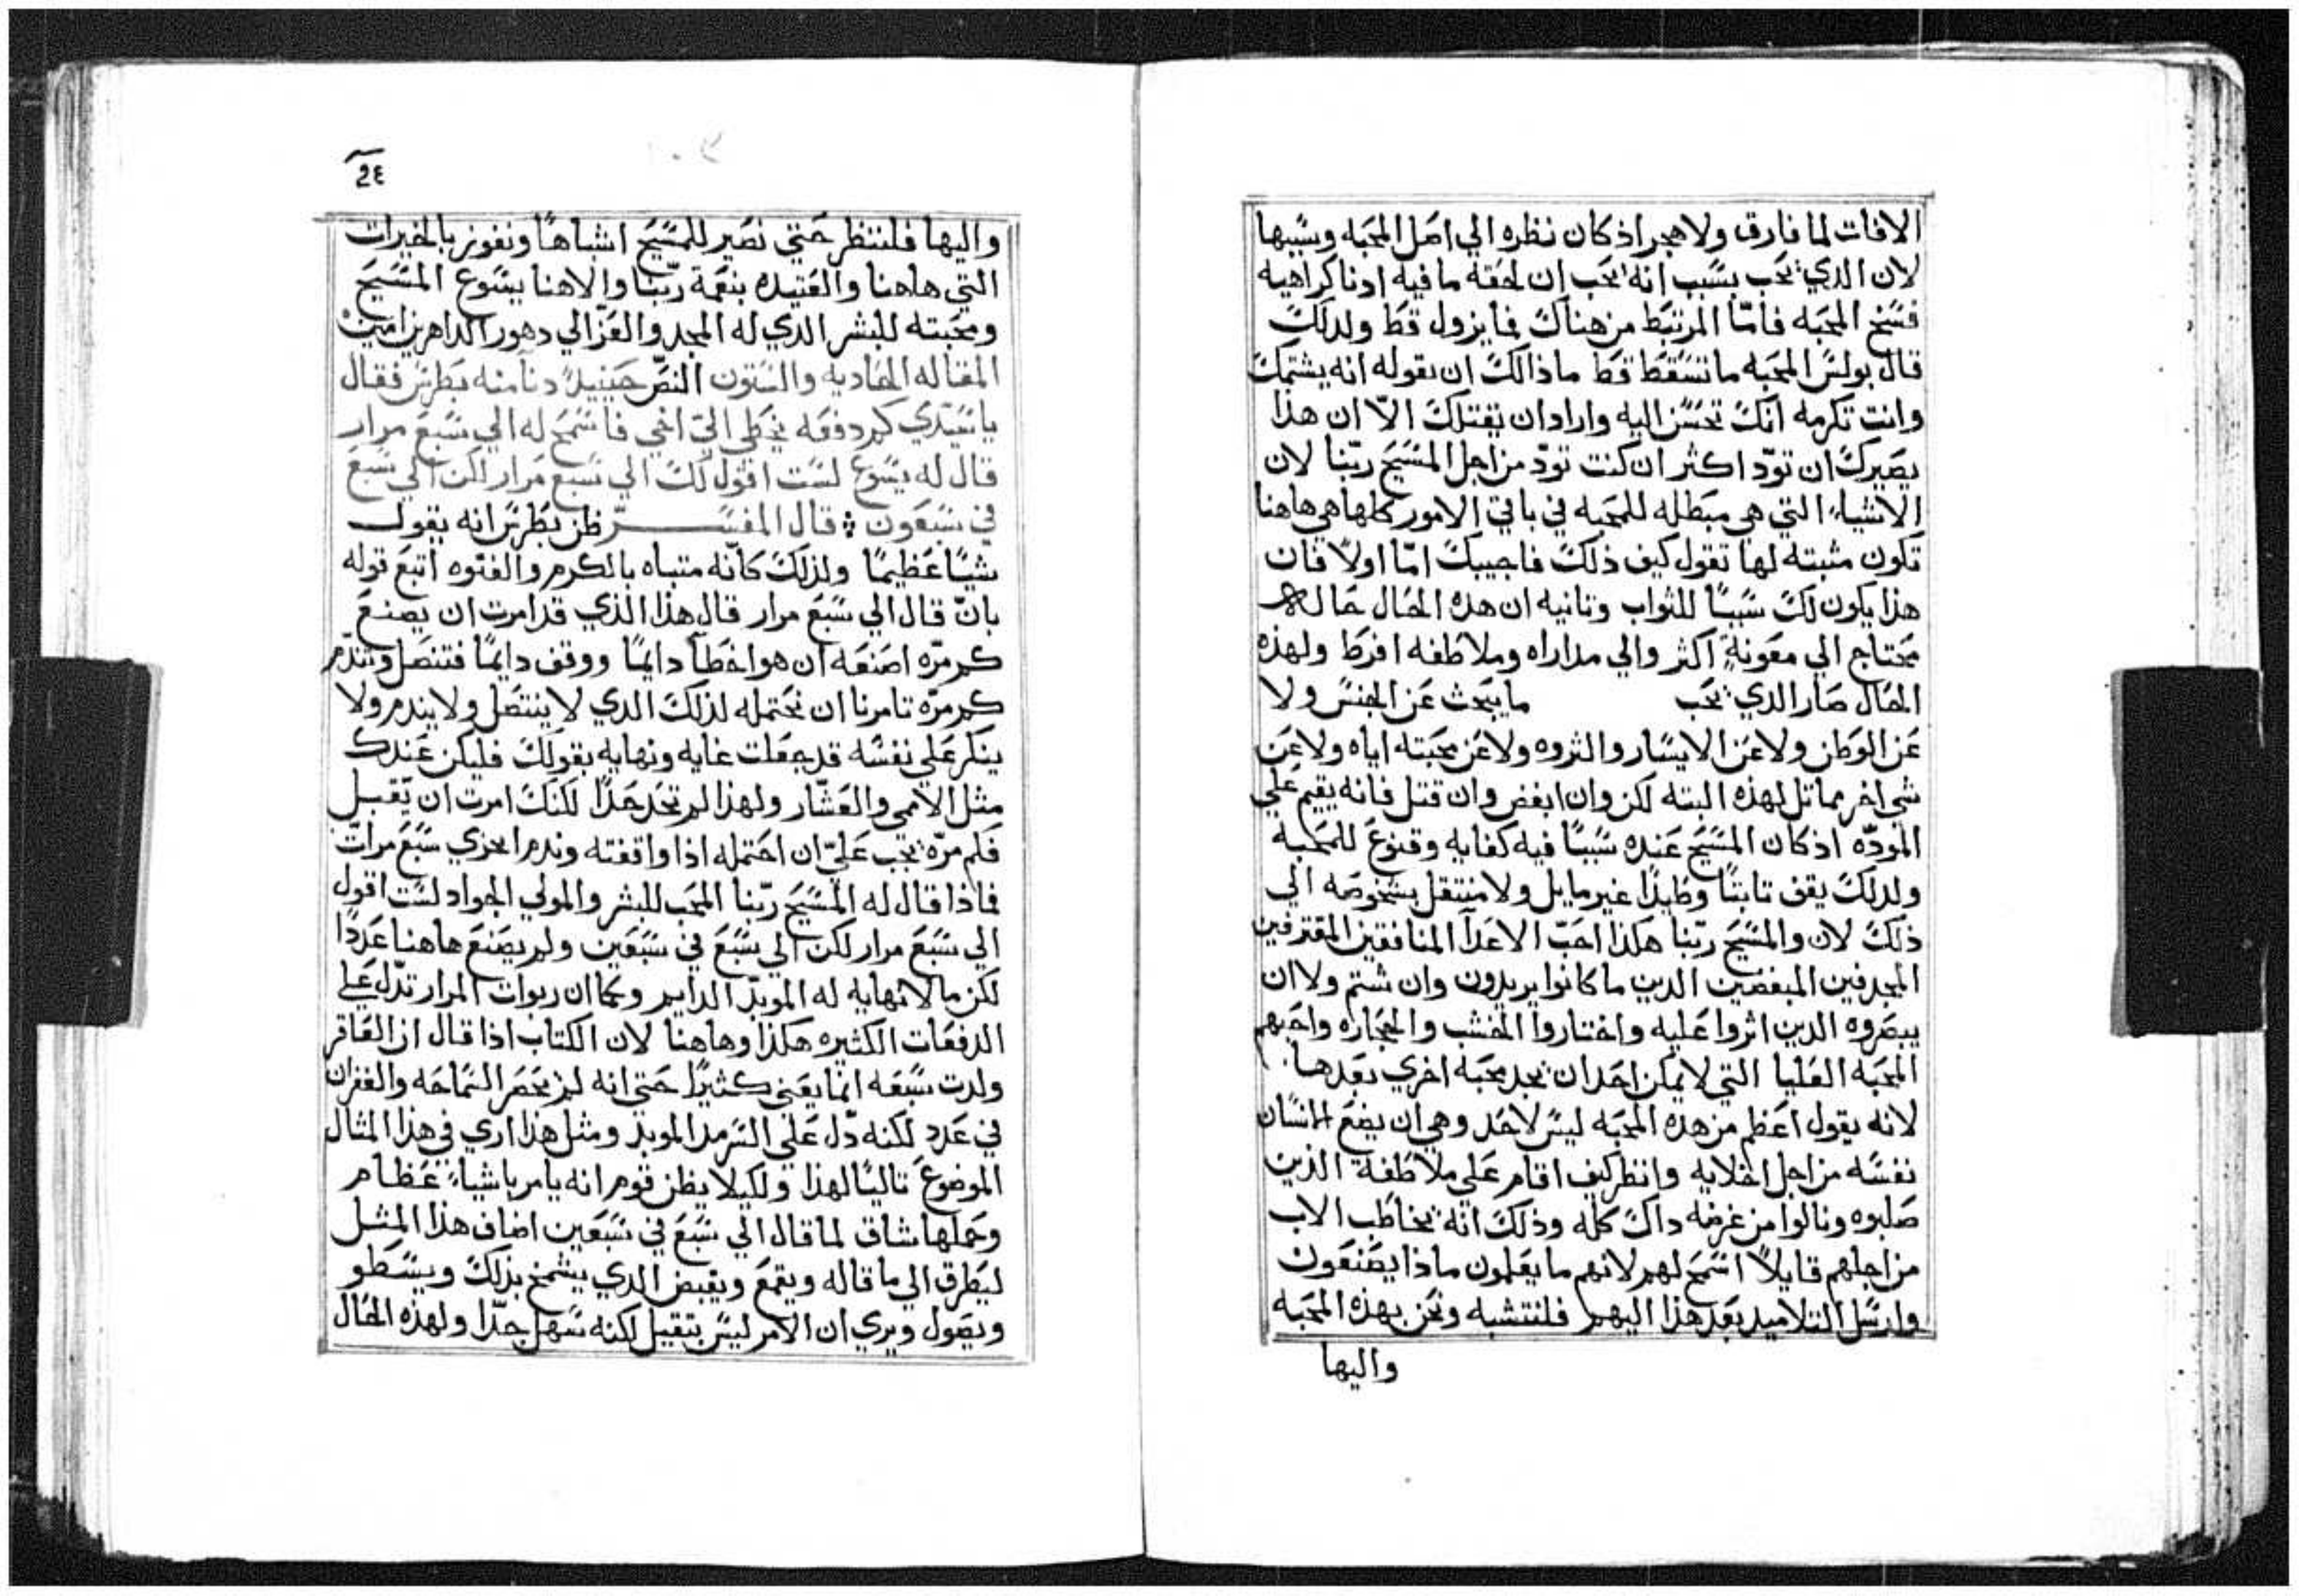 الافات لما فارق ولا هجر اذ كان نظره الي اصل المحبه وسببها
لان الدي يحب بسبب انه يحب ان لحقه ما فيه ادنا كراهيه
فسخ المحبه فامّا المرتبط من هناك فما يزول قط ولدلك
قال بولس المحبه ما تسقط قط ماذا لك ان تقوله انه يشتمك
وانت تكرمه انك تحسن اليه واراد ان يقتلك الاّ ان هذا
يصيرك ان تودّ اكثر ان كنت تودّ من اجل المسيح ربّنا لان
الاشياء التي هي مبطله للمحبه في باقي الامور كلها هي هاهنا
تكون مثبته لها تقول كيف ذلك فاجيبك امّا اولاً فان
هذا يكون لك سبباً للثواب وتانيه ان هده الحال حاله
محتاج الي معونةٍ اكثر والي مداراه وملاطفه افرط ولهذه
الحال صار الدي يحب ما يبحث عن الجنس ولا
عن الوطن ولا عن الايسار والثروه ولا عن محبته اياه ولا عن
شي اخر مماتل لهذه البته لكن وان ابغض وان قتل فانه يقيم علي
المودّه اذ كان المسيح عنده سبباً فيه كفايه وقنوع للمحبه
ولدلك يقف تابتاً وطيداً غير مايل ولا منتقل بشخوصه الي
ذلك لان والمسيح ربّنا هكذا احبّ الاعدآ المنافقين المقترفين
المجدفين المبغضين الدين ما كانوا يريدون وان شتم ولا ان
يبصروه الدين اثروا عليه واختاروا الخشب والحجاره واحبهم
المحبه العليا التي لا يمكن احد ان يجد محبه اخري بعدها
لانه يقول اعظم من هده المحبه ليس لاحد وهي ان يضع انسان
نفسه من اجل اخلايه وانظر كيف اقام علي ملاطفة الذين
صلبوه ونالوا من غرضه داك كله وذلك انه يخاطب الاب
من اجلهم قايلاً اسمح لهم لانهم ما يعلمون ماذا يصنعون
وارسل التلاميد بعد هذا اليهم فلنتشبه ونحن بهذه المحبه
واليها
2٤
واليها فلننظر حتي نصير للمسيح اشباهاً ونفوز بالخيرات
التي هاهنا والعتيده بنعمة ربّنا والاهنا يسوع المسيح
ومحبته للبشر الدي له المجد والعزّ الي دهور الداهرين امين
المقاله الحاديه والستون النصّ حينيدٍ دنا منه بطرس فقال
يا سيّدي كم دفعه يخطي اليّ اخي فاسمح له الي سبع مرار
قال له يسوع لست اقول لك الي سبع مرار لكن الي سبع
في سبعون ⁘ قال المفسّر ظن بطرس انه يقول
شيّاً عظيماً ولذلك كانّه متباه بالكرم والفتوه اتبع قوله
بانّ قال الي سبع مرار قال هذا الذي قد امرت ان يصنع
كم مرّه اصنعه ان هو اخطأ دايماً ووقف دايماً فتنصل وتندّم
كم مرّه تامرنا ان نحتمله لذلك الدي لا ينتصل ولا يندم ولا
ينكر علي نفسه قد جعلت غايه ونهايه بقولك فليكن عندك
مثل الاممي والعشّار ولهذا لم تحد حدّاً لكنك امرت ان يقبل
فكم مرّه يجب عليّ ان احتمله اذا واقفته وندم ايجزي سبع مرات
فماذا قال له المسيح ربّنا المحب للبشر والمولي الجواد لست اقول
الي سبع مرار لكن الي سبع في سبعين ولم يصنع هاهنا عدداً
لكن ما لا نهايه له المويدّ الدايم وكما ان ربوات المرار تدّل علي
الدفعات الكثيره هكذا وهاهنا لان الكتاب اذا قال ان العاقر
ولدت سبعه انما يعني كثيراً حتي انه لم يحصر السماحه والغفران
في عدد لكنه دّل علي السرمد المويد ومثل هذا اري في هذا المثال
الموضوع تالياً لهذا ولكيلا يظن قوم انه يامر باشياءٍ عظام
وحملها شاق لما قال الي سبع في سبعين اضاف هذا المثل
ليطرق الي ما قاله ويقمع ويقبض الدي يشمخ بذلك ويسطو
ويصول ويري ان الامر ليس بتقيل لكنه سهل جدّا ولهذه الحال